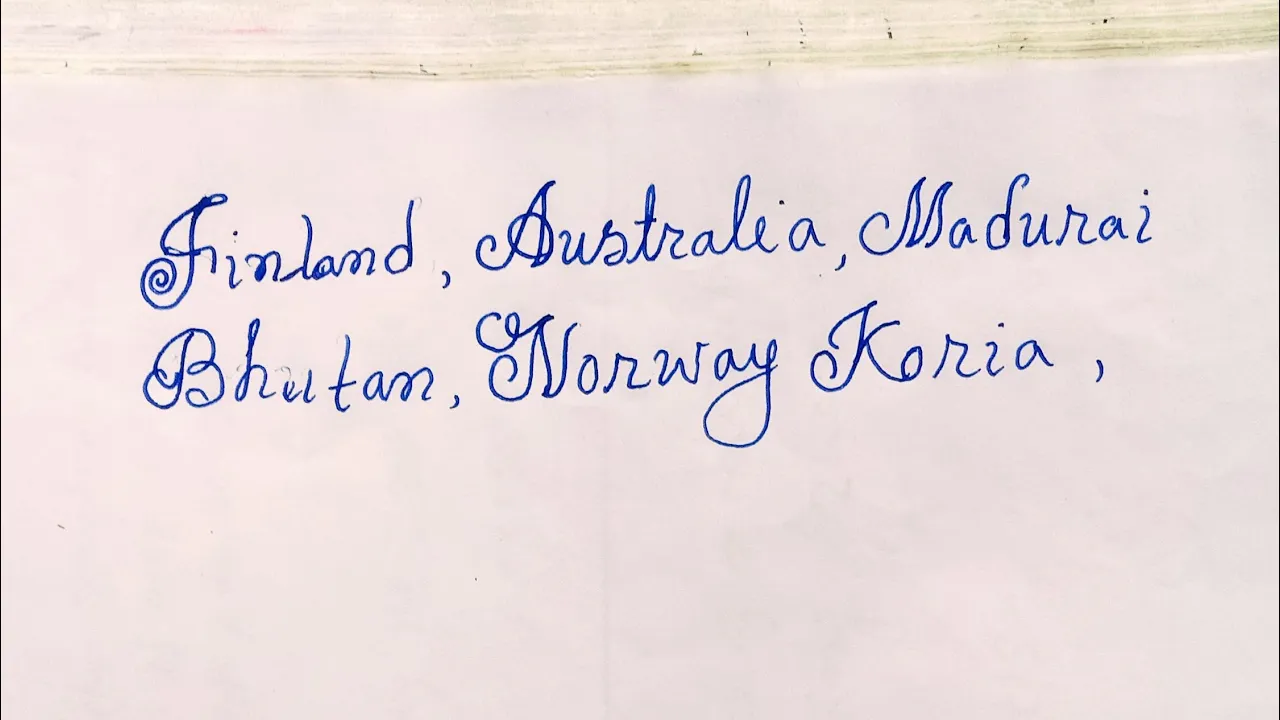 Finland, Australia, Madurai
Bhutan, Norway Koria ,